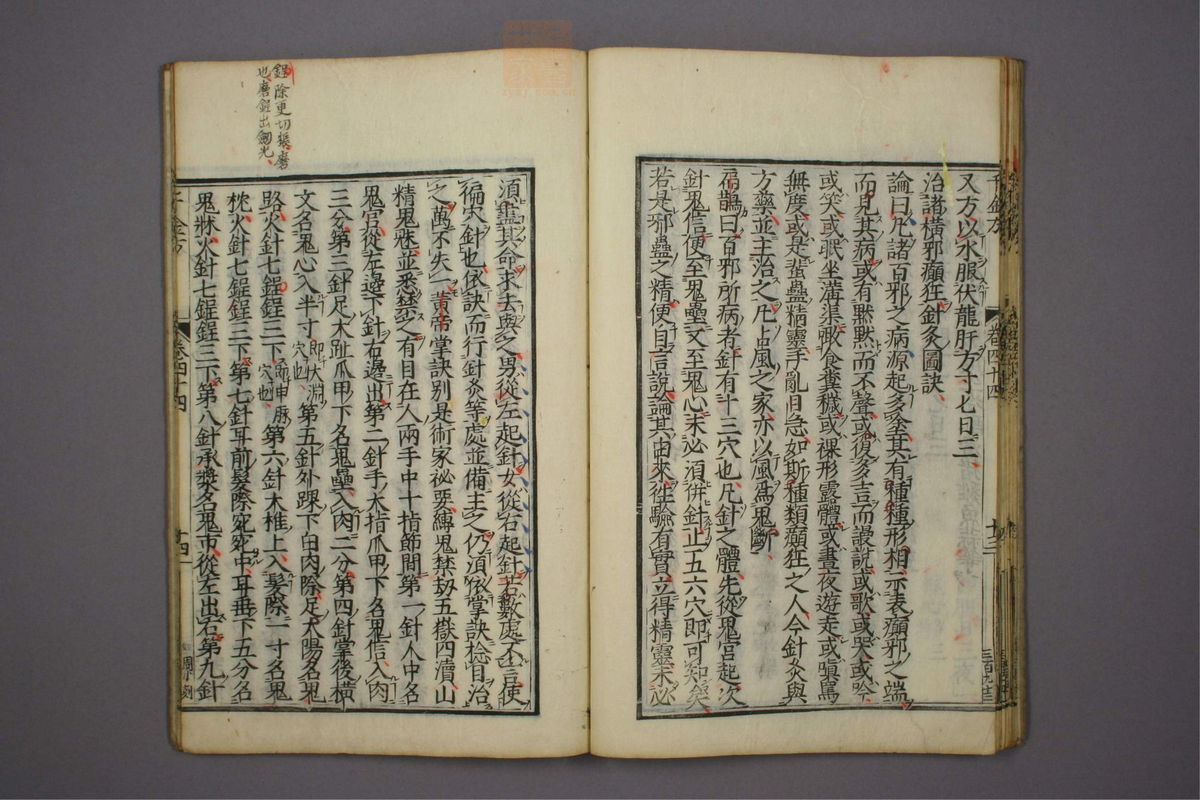 又方以水服伏龍肝方寸匕日三
治諸横邪癲狂針灸圖訣
論曰凢諸百邪之病源起多塗其有種種形相示表癲邪之端
而見其病或有黙黙而不聲或復多言而謾說或歌或哭或吟
或笑或眠坐溝渠噉食糞穢或裸形露體或晝夜遊走或嗔罵
無度或是蜚蠱精靈手亂目急如斯種類癲狂之人今針灸與
方藥並主治之凢占風之家亦以風爲鬼斷
扁鵲曰百邪所病者針有十三穴也凢針之體先從鬼宫起次
針鬼信便至鬼壘又至鬼心未必須併針止五六穴即可知矣
若是邪蠱之精便自言說論其由來徃驗有實立得精靈未必
須盡其命求去與之男從左起針女從右起針若數處不言使
徧穴針也依訣而行針灸等處並備主之仍須依掌訣捻目治
之萬不失一黄帝掌訣别是術家祕要縛鬼禁劾五嶽四瀆山
精鬼魅並悉禁之有目在人兩手中十指節間第一針人中名
鬼宫從左邊下針右邊出第二針手大指爪甲下名鬼信入肉
三分第三針足大趾爪甲下名鬼壘入肉二分第四針掌後横
文名鬼心入半寸即太淵穴也第五針外踝下白肉際足太陽名鬼
路火針七鋥鋥三下即申脉穴也第六針大椎上入髮際一寸名鬼
枕火針七鋥鋥三下第七針耳前髮際宛宛中耳垂下五分名
鬼牀火針七鋥鋥三下第八針承漿名鬼市從左出右第九針
千金方
卷四十四
十三
千金方
卷四十四
十四
鋥除更切 磨
也磨鋥出劒光